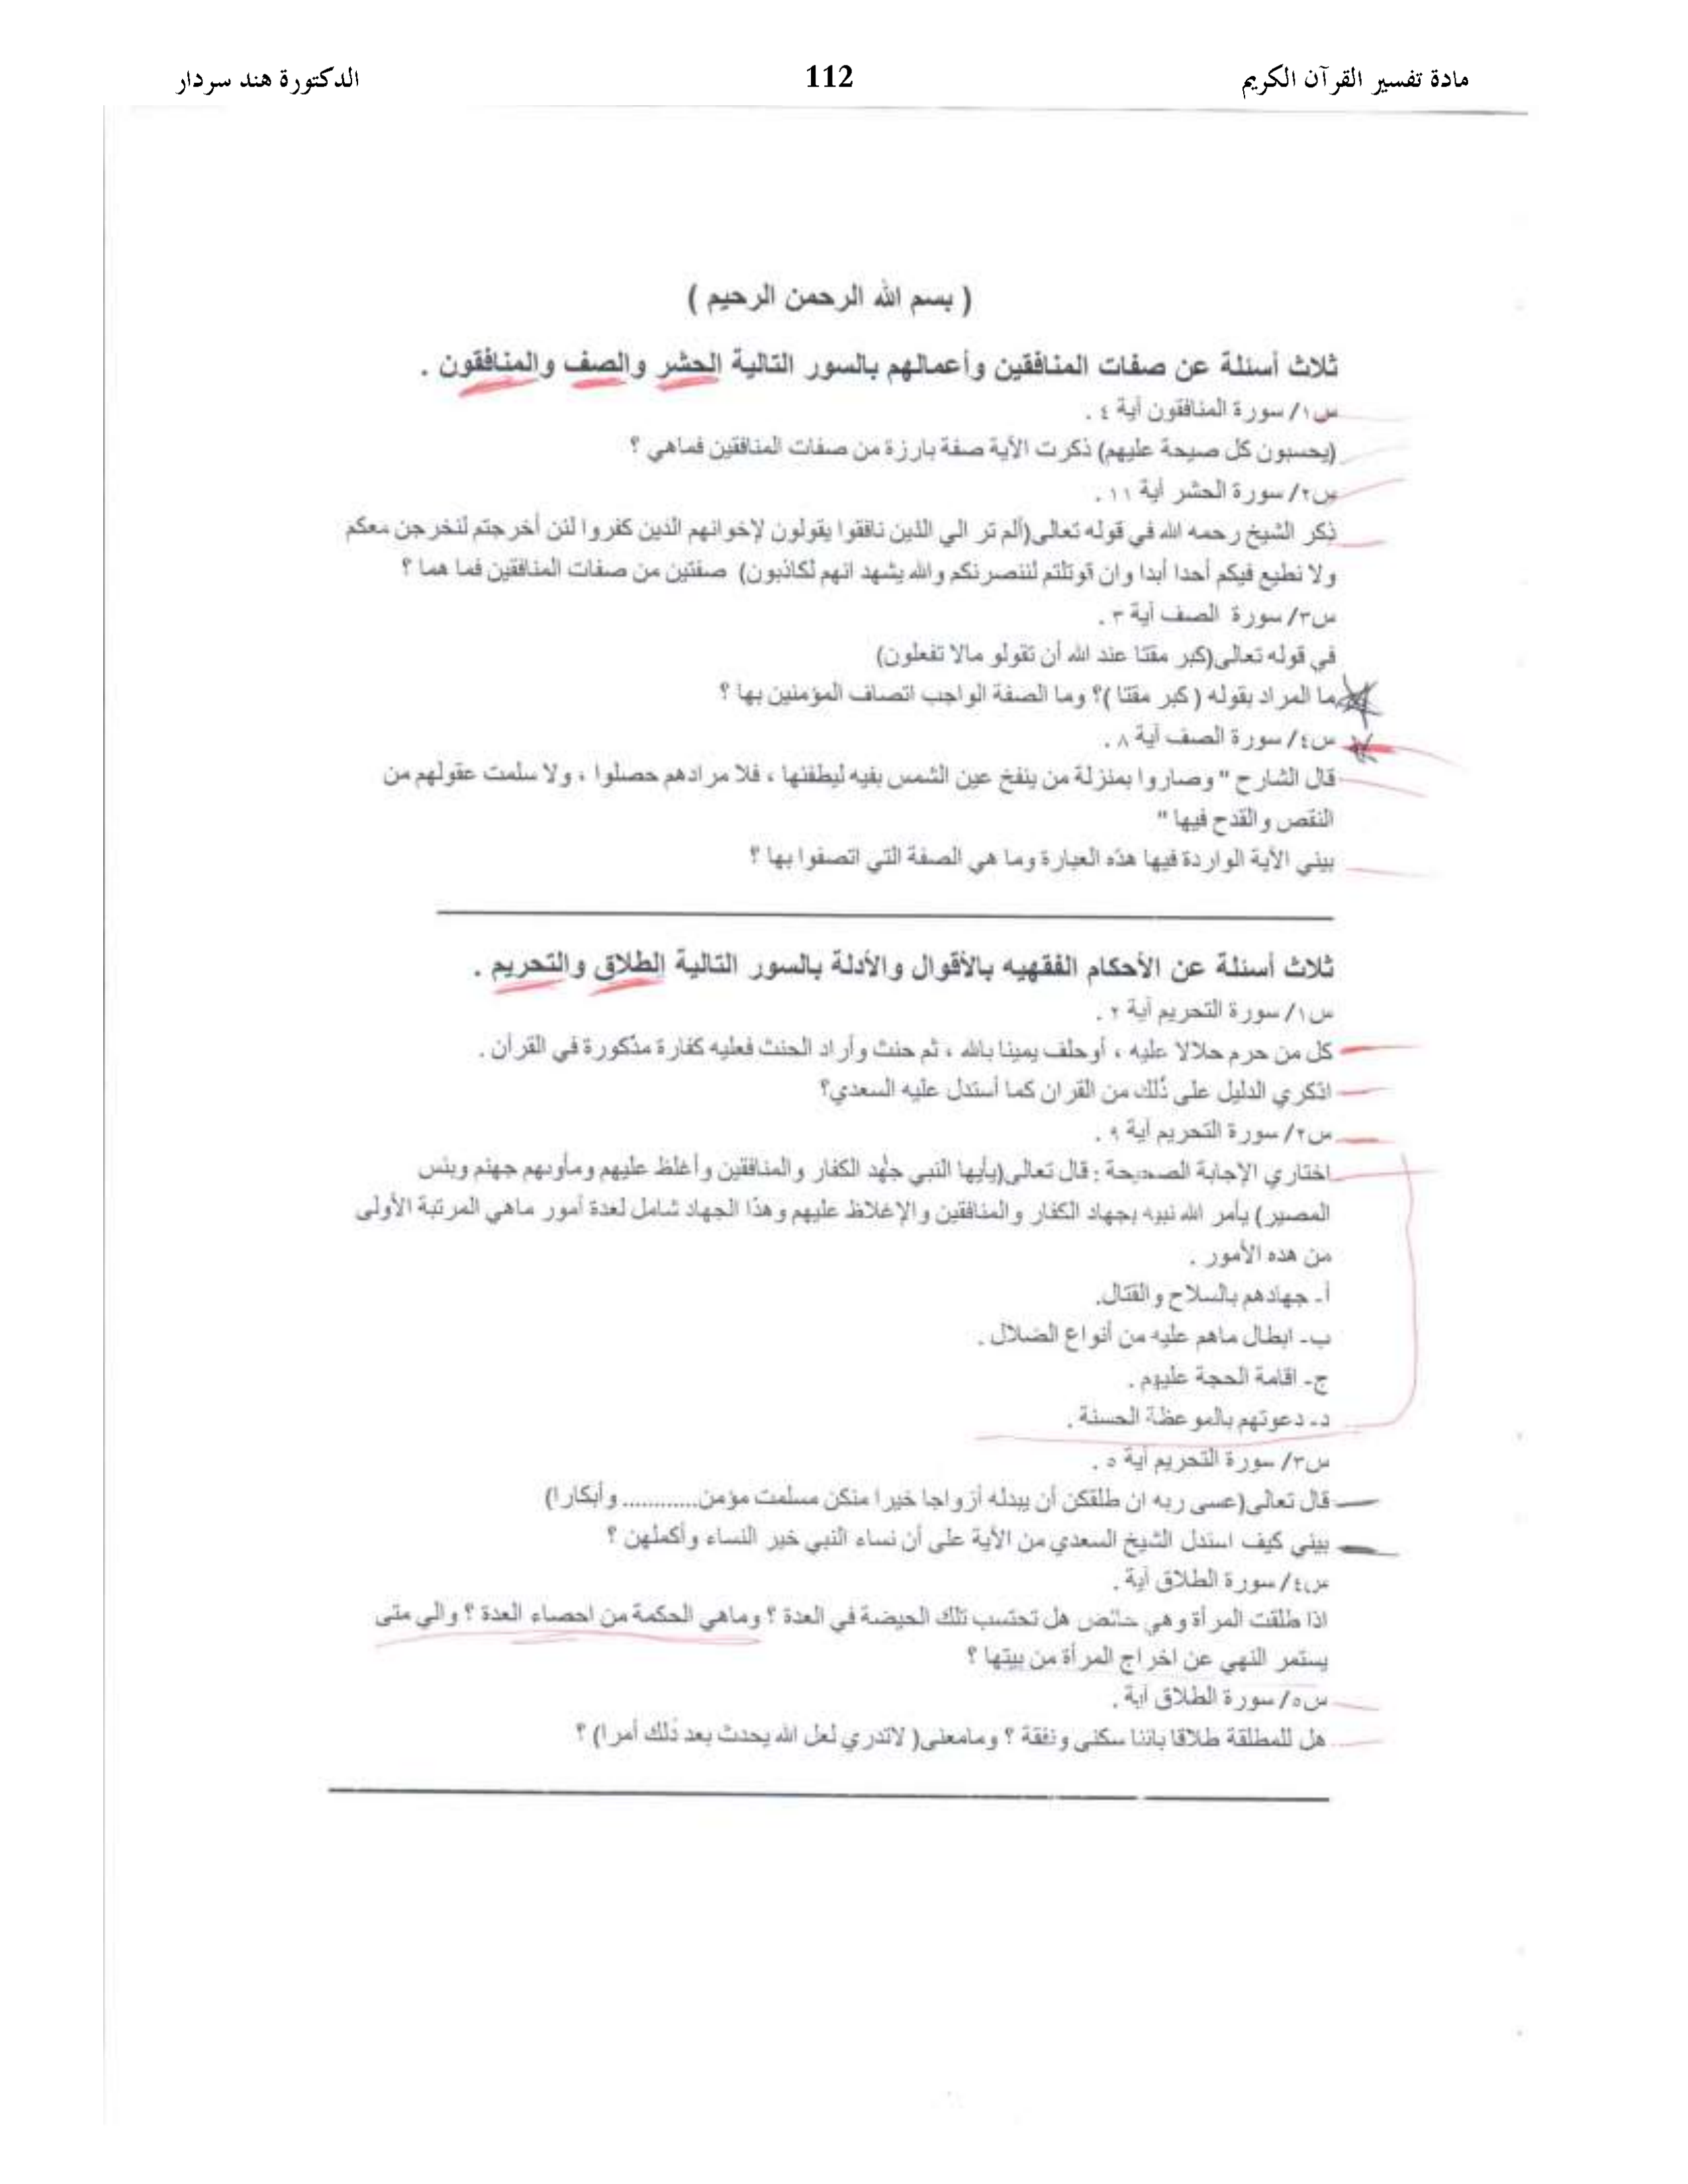 مادة تفسير القرآن الكريم
112
الدكتورة هند سردار
( بسم الله الرحمن الرحيم )
ثلاث أسئلة عن صفات المنافقين وأعمالهم بالسور التالية الحشر والصف والمنافقون .
س١/ سورة المنافقون أية ٤ .
(يحسبون كل صيحة عليهم) ذكرت الآية صفة بارزة من صفات المنافقين فماهي ؟
س٢/ سورة الحشر أية ١١ .
ذكر الشيخ رحمه الله في قوله تعالى(ألم تر الي الذين نافقوا يقولون لإخوانهم الذين كفروا لئن أخرجتم لنخرجن معكم
ولا نطيع فيكم أحدا أبدا وان قوتلتم لننصرنكم والله يشهد انهم لكاذبون) صفتين من صفات المنافقين فما هما ؟
س٣/ سورة الصف أية ٣ .
في قوله تعالى(كبر مقتا عند الله أن تقولو مالا تفعلون)
ما المراد بقوله ( كبر مقتا )؟ وما الصفة الواجب اتصاف المؤمنين بها ؟
س٤/ سورة الصف أية ٨ .
قال الشارح " وصاروا بمنزلة من ينفخ عين الشمس بفيه ليطفئها ، فلا مرادهم حصلوا ، ولا سلمت عقولهم من
النقص والقدح فيها "
بيني الآية الواردة فيها هذه العبارة وما هي الصفة التي اتصفوا بها ؟
ثلاث أسئلة عن الأحكام الفقهيه بالأقوال والأدلة بالسور التالية الطلاق والتحريم .
س١/ سورة التحريم أية ٢ .
كل من حرم حلالا عليه ، أوحلف يمينا بالله ، ثم حنث وأراد الحنث فعليه كفارة مذكورة في القرآن .
اذكري الدليل على ذلك من القران كما أستدل عليه السعدي؟
س٢/ سورة التحريم أية ٩ .
اختاري الإجابة الصحيحة : قال تعالى(يأيها النبي جهد الكفار والمنافقين وأغلظ عليهم ومأوىهم جهنم وبئس
المصير) يأمر الله نبيه بجهاد الكفار والمنافقين والإغلاظ عليهم وهذا الجهاد شامل لعدة أمور ماهي المرتبة الأولى
من هده الأمور .
أ- جهادهم بالسلاح والقتال.
ب- ابطال ماهم عليه من أنواع الضلال .
ج- اقامة الحجة عليهم .
د- دعوتهم بالموعظة الحسنة .
س٣/ سورة التحريم أية ٥ .
قال تعالى(عسى ربه ان طلقكن أن يبدله أزواجا خيرا منكن مسلمت مؤمن............ وأبكارا)
بيني كيف استدل الشيخ السعدي من الأية على أن نساء النبي خير النساء وأكملهن ؟
س٤/ سورة الطلاق أية .
اذا طلقت المرأة وهي حائض هل تحتسب تلك الحيضة في العدة ؟ وماهي الحكمة من احصاء العدة ؟ والي متى
يستمر النهي عن اخراج المرأة من بيتها ؟
س٥/ سورة الطلاق أية .
هل للمطلقة طلاقا بائنا سكنى ونفقة ؟ ومامعنى( لاتدري لعل الله يحدث بعد ذلك أمرا) ؟